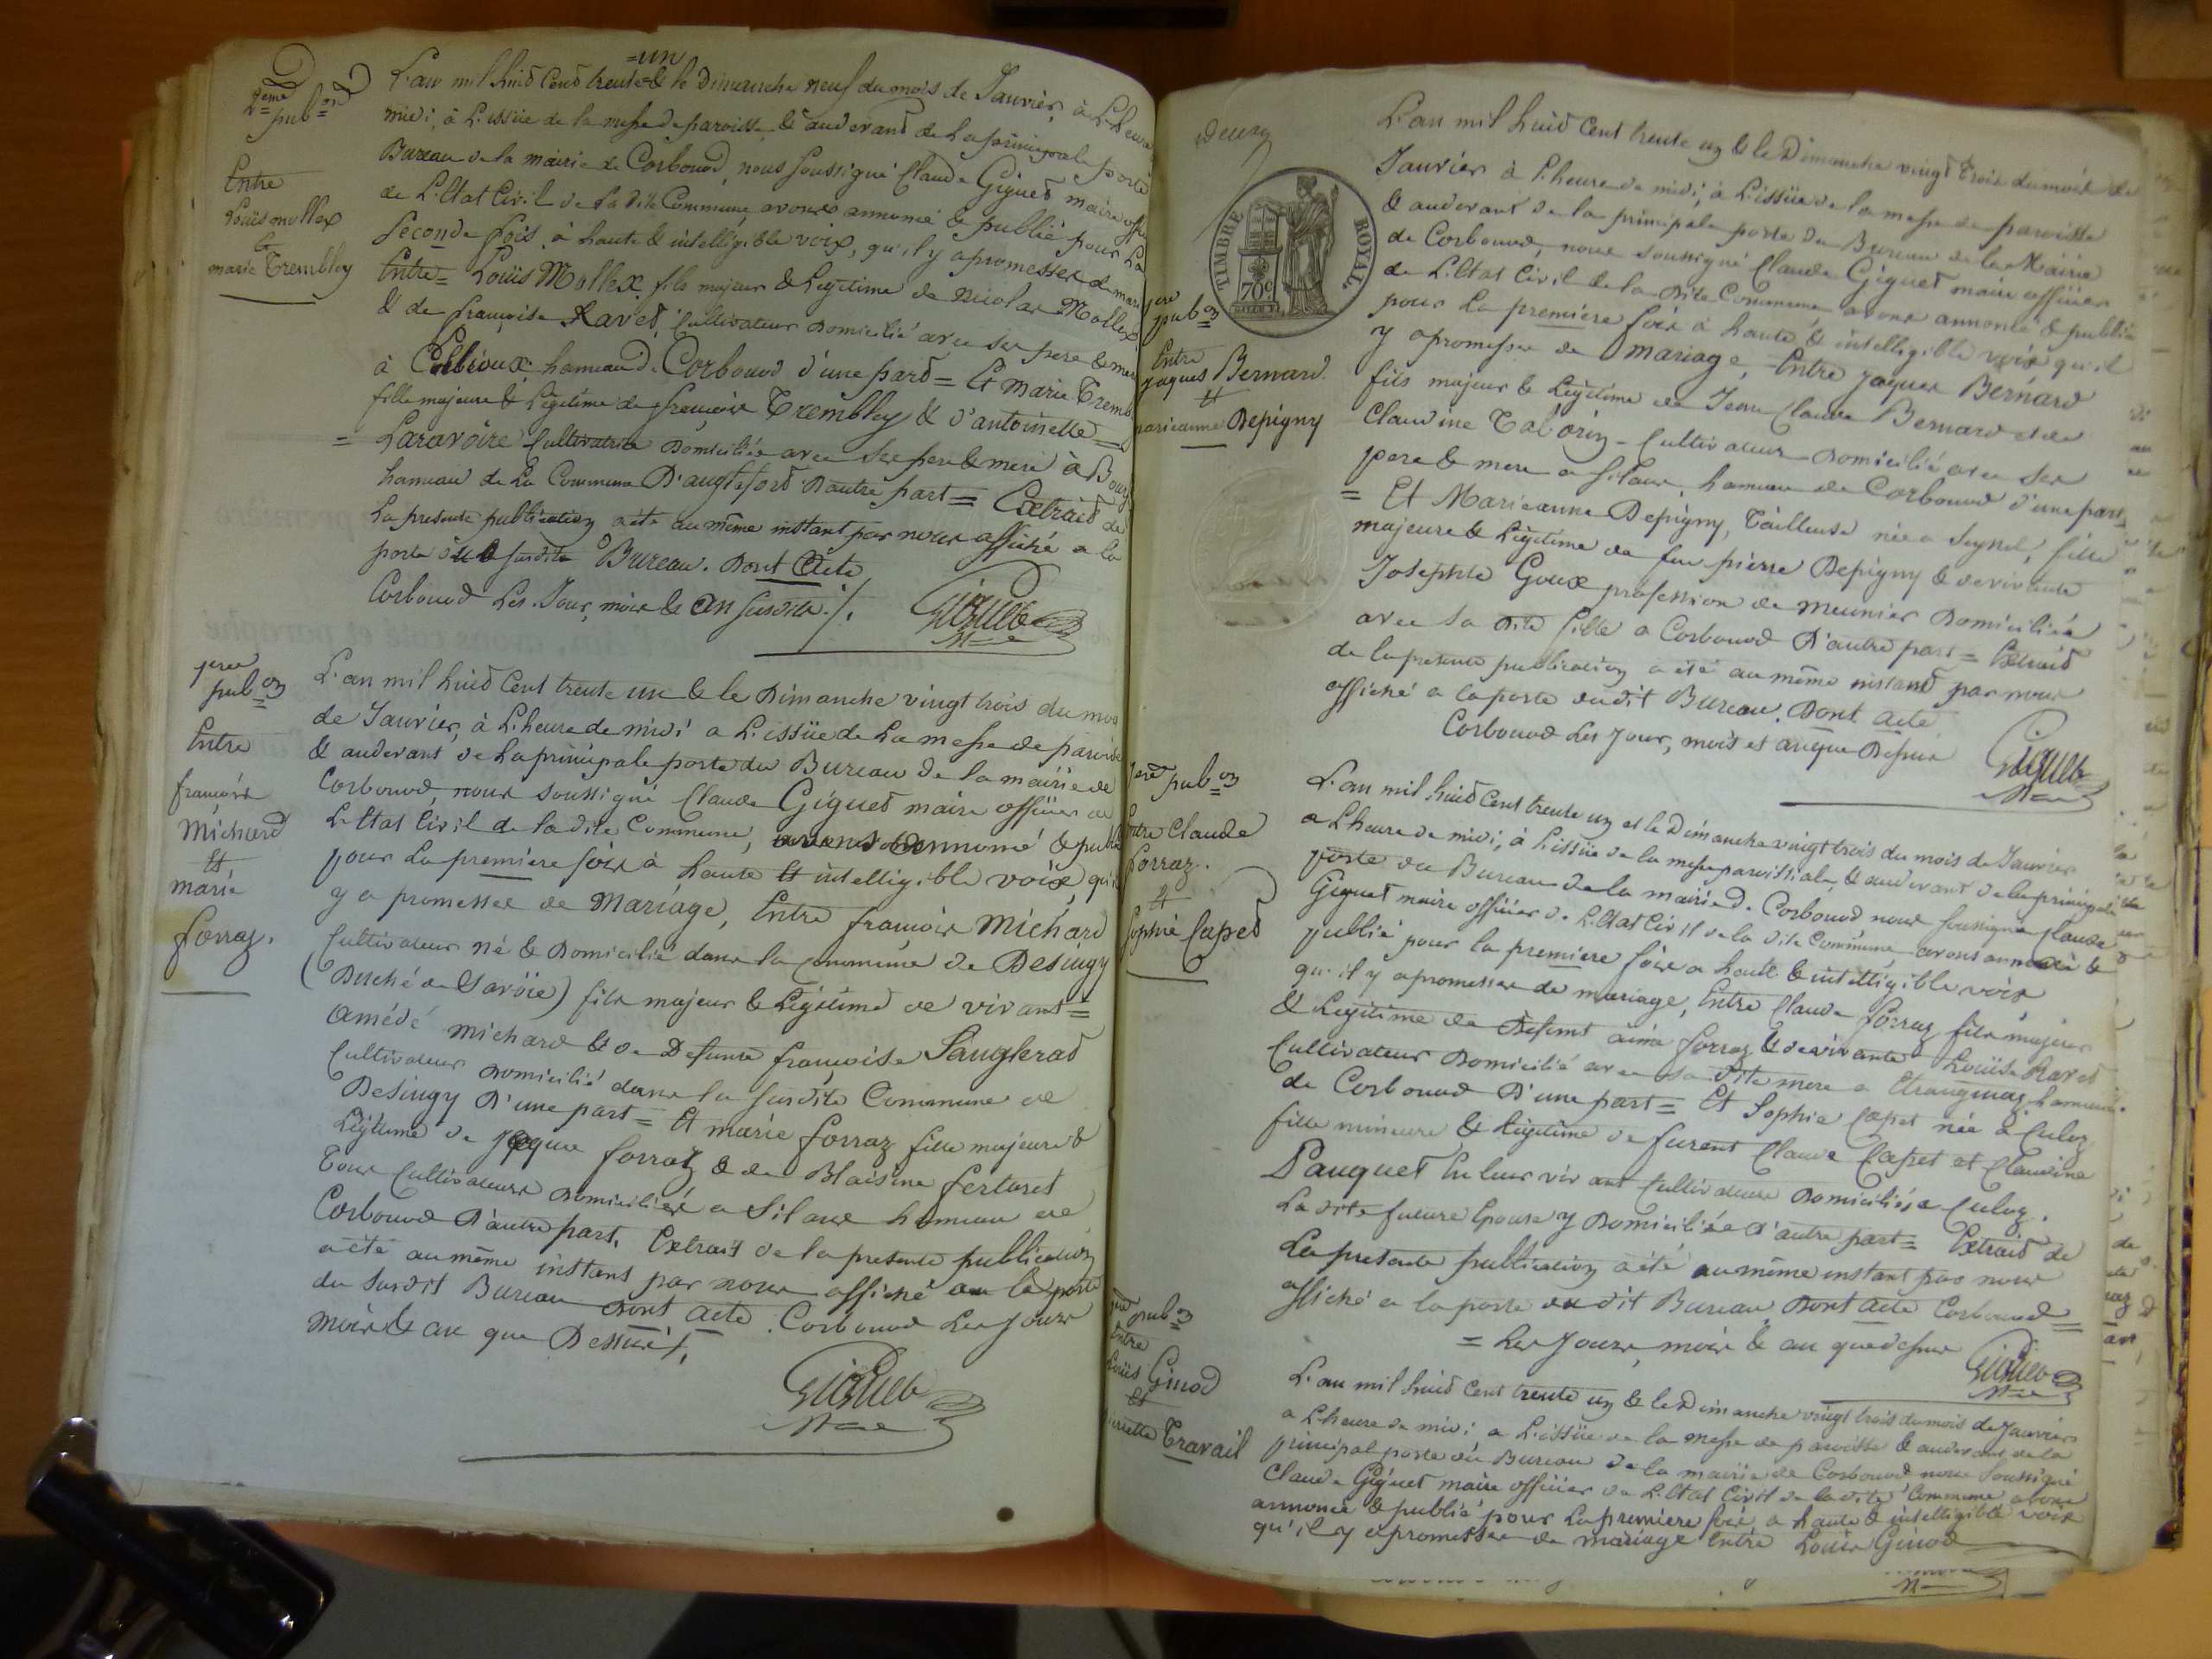 2eme
pubon
Entre
Louis mollex
&
marie Trembley
=un
L'an mil huit Cent trente & le Dimanche neuf du mois de Janvier, à L'heure
midi, à L'issüe de la messe de paroisse & audevant de La principale porte
Bureau de la mairie de Corbonod, nous soussigné Claude Giguet maire offi
de L'Etat Civil de la dite Commune avons annoncé & publié pour La
Seconde fois, à haute & intelligible voix, qu'il y a promesses de mari
Entre= Louïs Mollex fils majeur & Légitime de Nicolas Mollex
& de françoise Ravet, Cultivateur Domicilié avec ses pere & mere
à hameau de Corbonod d'une part= Et Marie Tremb
fille majeure & Légitime de françois Trembley & d'antoinette=
= Laravoire Cultivatrice Domiciliée avec ses pere & mere à
hameau de La Commune D'anglefort D'autre part= Extrait de
La presente publication a été au même instant par nous affiché a la
porte du susdite Bureau. Dont Acte
Corbonod Les Jour, mois & An susdits./.
Giguet
Mre
1ere
pubon
Entre
françois
Michard
Et
marie
forraz.
L'an mil huit Cent trente un & le Dimanche vingt trois du mois
de Janvier, à L'heure de midi a L'issüe de La messe de paroisse
& audevant de La principale porte du Bureau de la mairie de
Corbonod, nous soussigné Claude Giguet maire officier de
L'Etat Civil de la dite Commune, avons annoncé & publié
pour La premiere fois à haute Et intelligible voix, qu'il
y a promesses de Mariage, Entre françois Michard
Cultivateur né & Domicilié dans la Commune de Desingy
(Duché de Savöie) fils majeur & Légitime de vivant=
Amédé Michard & de Defunte françoise
Cultivateur Domicilié dans la susdite Commune de
Desingy D'une part= Et marie forraz fille majeure &
Légitime de Jaque forraz & de Blaisine fertoret
Tous Cultivateurs Domiciliés a Silans hameau de
Corbonod D'autre part, Extrait de la presente publication
a été au même instant par nous affiché a la porte
du susdit Bureau Dont acte. Corbonod Les Jours
mois & an que Dessus/.
Giguet
Mre
deux
TIMBRE ROYAL
70c
1ere
pubon
Entre
jaques Bernard
Et
marieanne Depigny
L'an mil huit Cent trente un & le Dimanche vingt trois du mois de
Janvier à L'heure de midi, à L'issüe de la messe de paroisse
& audevant de la principale porte du Bureau de la Mairie
de Corbonod, nous soussigné Claude Giguet maire officier
de L'Etat Civil de la dite Commune avons annoncé & publié
pour La premiere fois à haute & intelligible voix qu'il
y a promesses de Mariage, Entre jaques Bernard
fils majeur & Légitime de Jean Claude Bernard et de
Claudine Tabörin - Cultivateur Domicilié avec ses
pere & mere a Silans, hameau de Corbonod d'une part
= Et Marieanne Depigny, Tailleuse née a Seyssel, fille
majeure & Légitime de feu pierre Depigny & de vivante
Josephte Goux profession de meunier Domiciliée
avec sa dite fille a Corbonod D'autre part= Extrait
de la presente publication a été au même instant par nous
affiché a la porte dudit Bureau. Dont acte
Corbonod Les Jour, mois et an que Dessus
Giguet
Mre
1ere pubon
Entre Claude
forraz.
Et
Sophie Capet
L'an mil huit Cent trente un et le Dimanche vingt trois du mois de Janvier
a L'heure de midi, à L'issüe de la messe paroissiale, & audevant de la principale
porte du Bureau de la mairie de Corbonod nous soussigné Claude
Giguet maire officier de L'Etat Civil de la dite Commune, avons annoncé &
publié pour la premiere fois a haute & intelligible voix
qu'il y a promesses de mariage, Entre Claude forraz fils majeur
& Légitime de Defunt aimé forraz & de vivante Louïse Ravet
Cultivateur Domicilié avec sa dite mere a hameau
de Corbonod D'une part= Et Sophie Capet née à Culoz
fille mineure & Légitime de furent Claude Capet et Claudine
Pauquet En leur vivant Cultivateurs Domiciliés a Culoz.
La dite future Epouse y Domiciliée D'autre part= Extrait de
La presente publication a été au même instant par nous
affiché a la porte du dit Bureau, Dont acte Corbonod=
= Les Jours, mois & an que dessus
Giguet
Mre
1ere pubon
Entre
Louïs Ginod
Et
Travail
L'an mil huit Cent trente un & le Dimanche vingt trois du mois de Janvier
a L'heure de midi a L'issüe de la messe de paroisse & audevant de la
principal porte du Bureau de la mairie de Corbonod nous soussigné
Claude Giguet maire officier de L'Etat Civil de la dite Commune avons
annoncé & publié pour La premiere fois, a haute & intelligible voix
qu'il y a promesses de mariage Entre Louïs Ginod